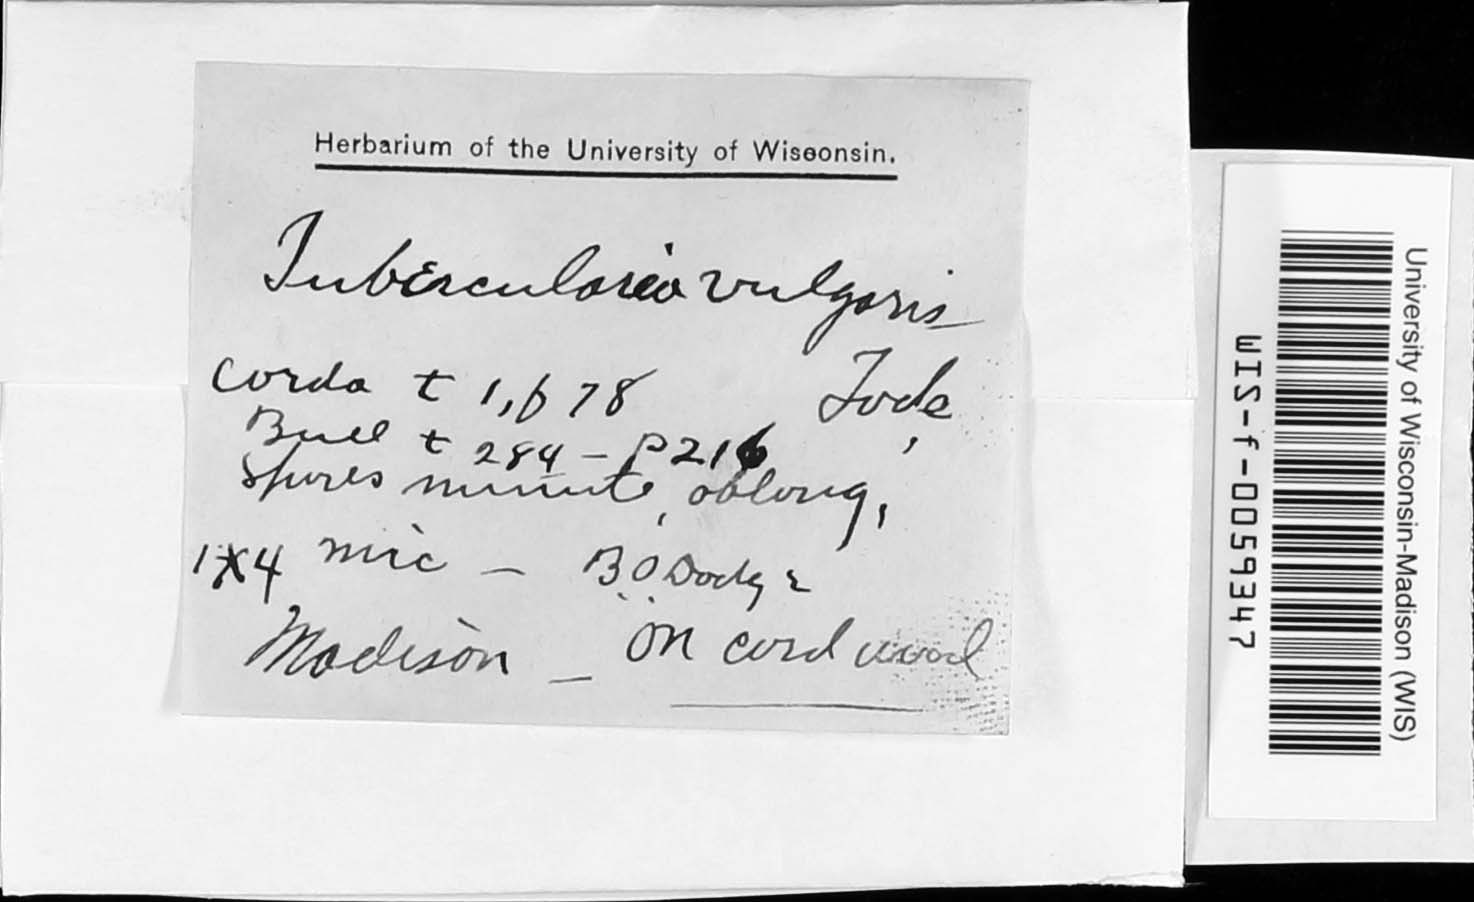 Herbarium of the University of Wisconsin.
Tubercularia vulgaris
Tode
Corda t 1, f 78
Bull t 284 - P 216
Spores minute, oblong,
1x4 mic - B.O. Dodge
Madison - on cord wood
University of Wisconsin-Madison (WIS)
WIS-f-0059347